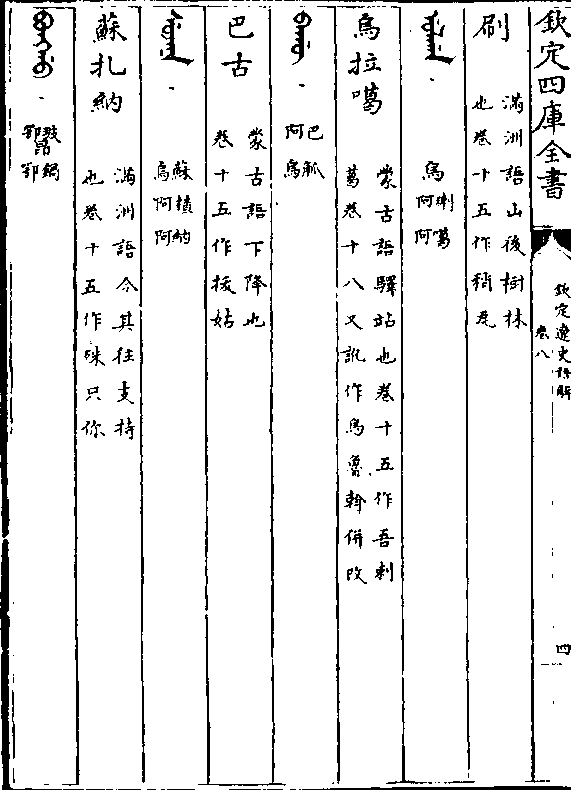 欽定四庫全書
欽定遼史語解
卷八
四
刷
滿洲語山後樹林
也卷十五作稍瓦
烏
喇噶
阿阿
烏拉噶
蒙古語驛站也卷十五作吾剌
葛卷十八又訛作烏魯斡併改
巴觚
阿烏
巴古
蒙古語下降也
卷十五作拔姑
蘇 納
烏阿阿
蘇扎納
滿洲語令其往支持
也卷十五作殊只你
鍋
鄂